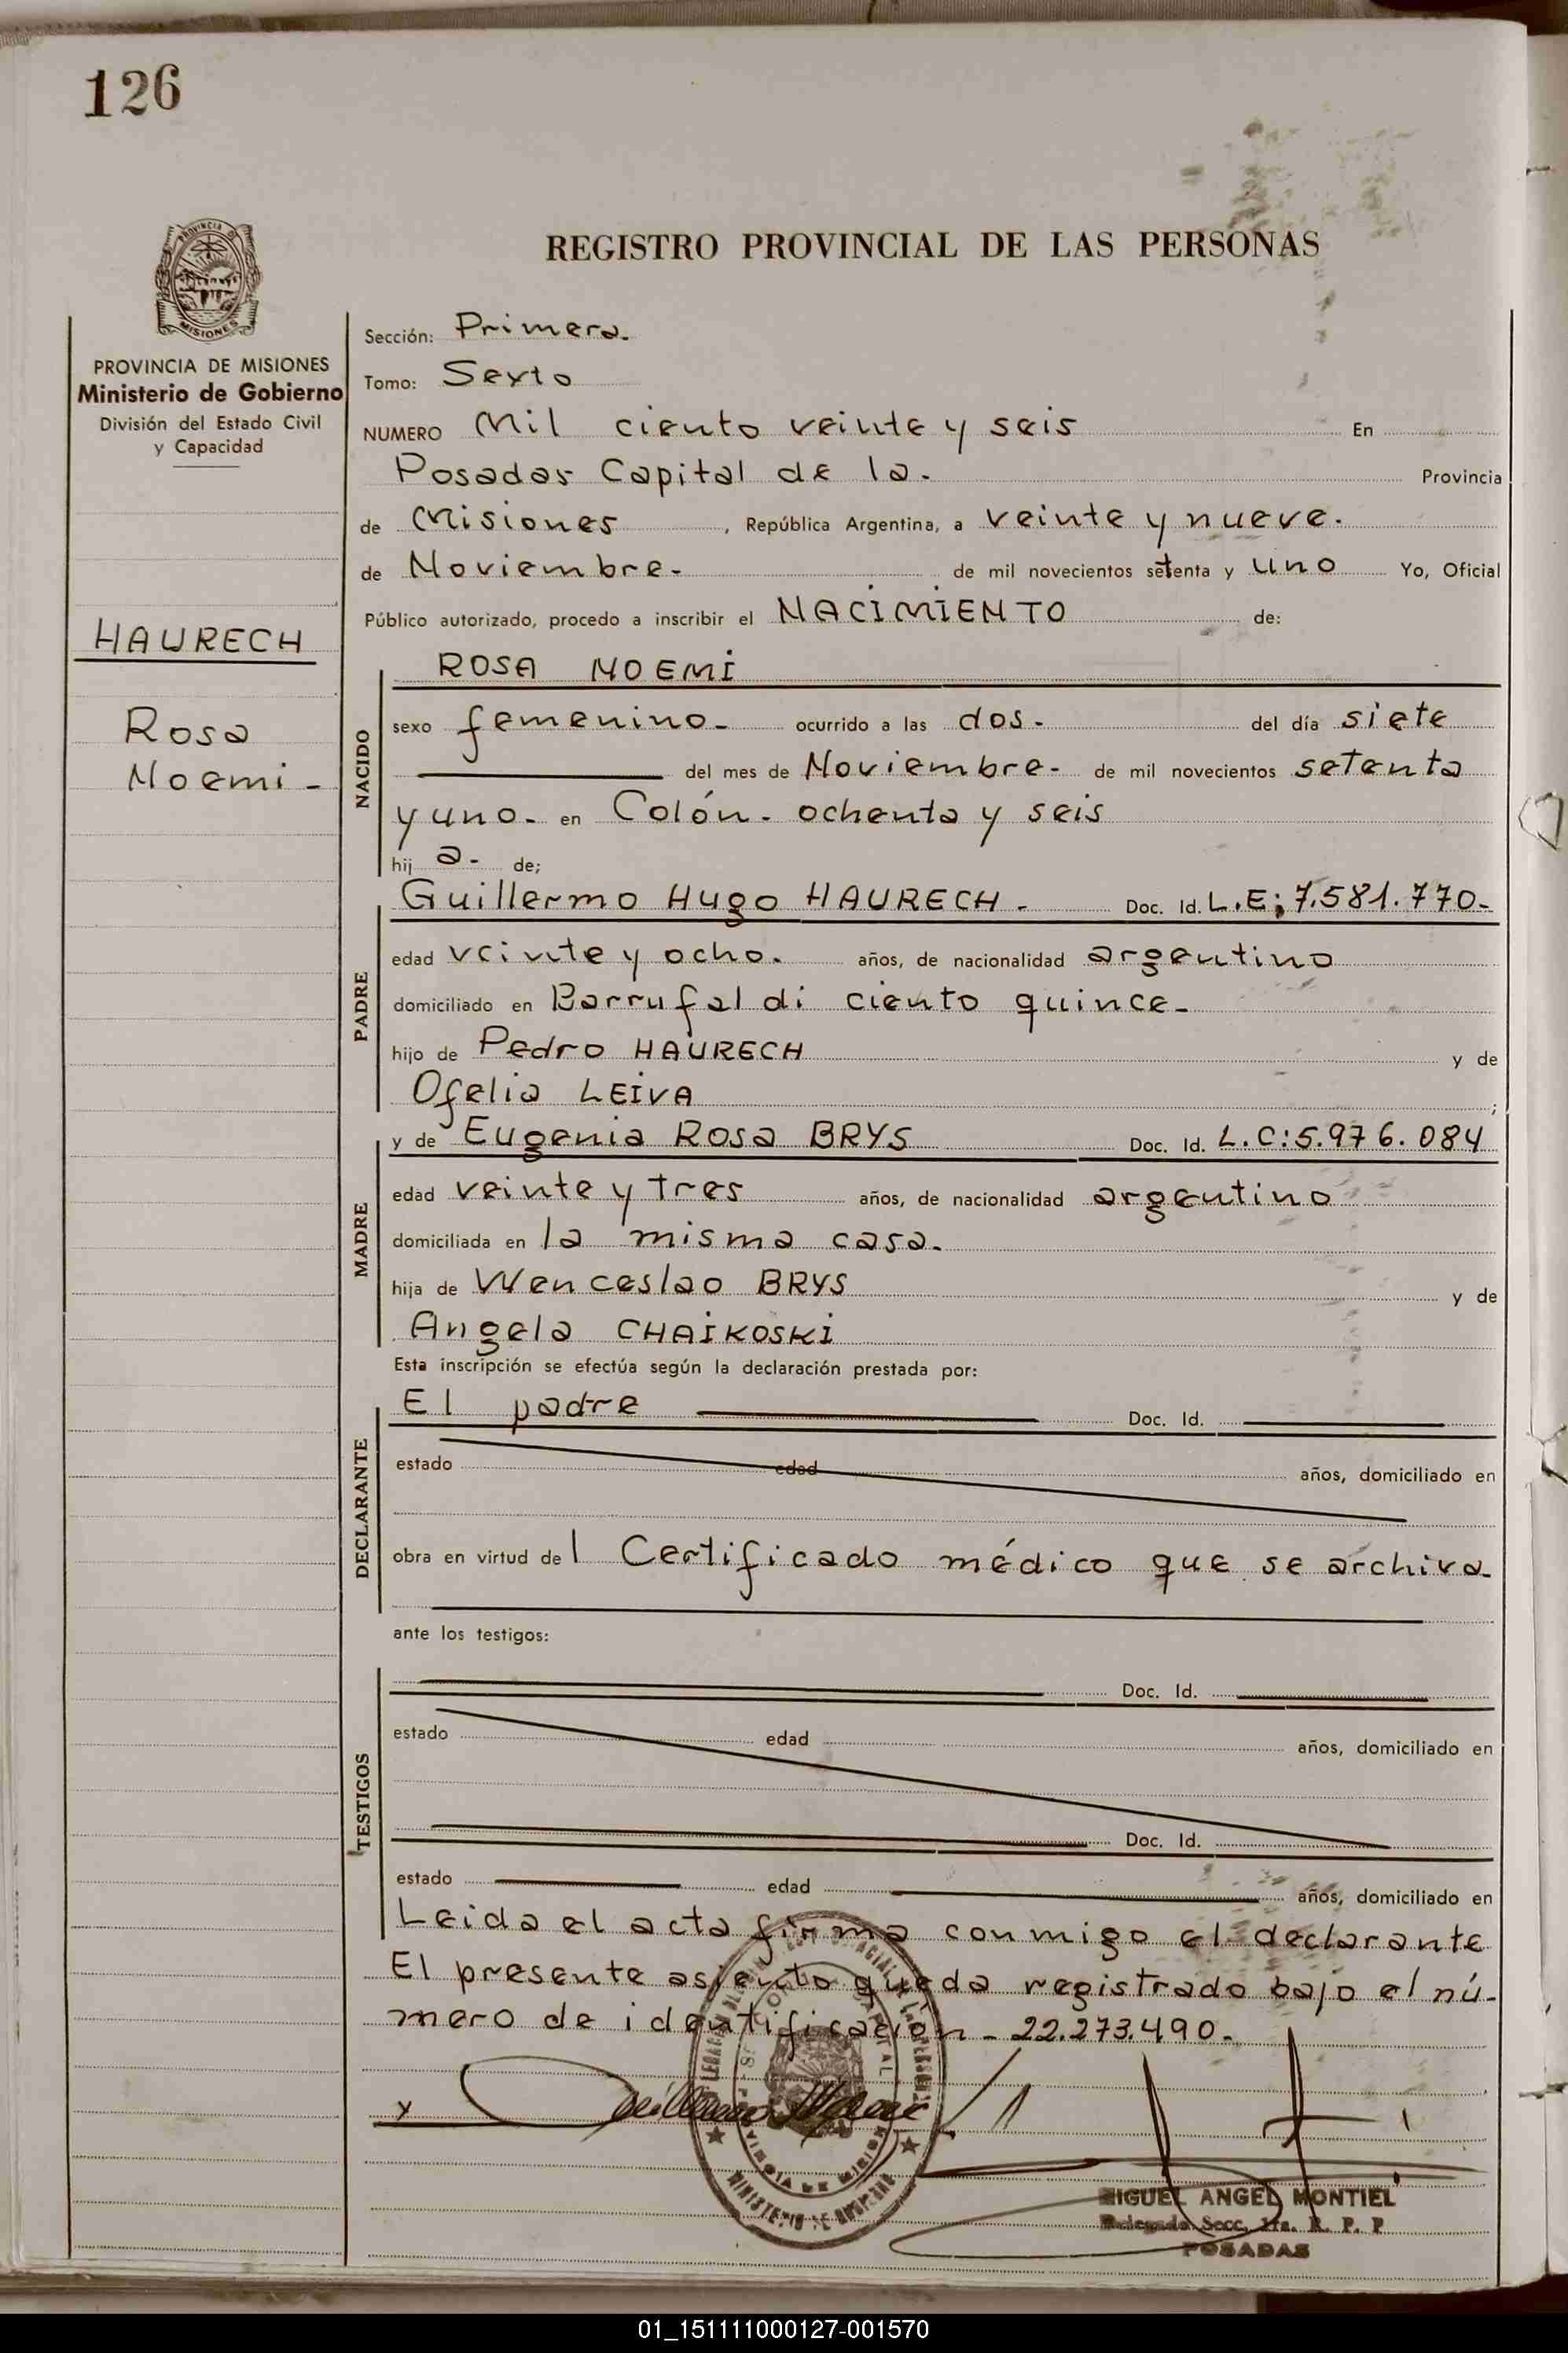 126
REGISTRO PROVINCIAL DE LAS PERSONAS
PROVINCIA DE MISIONES
Ministerio de Gobierno
División del Estado Civil
y Capacidad
HAURECH
Rosa
Noemi -
Sección: Primera.
Tomo: Sexto
NUMERO Mil ciento veinte y seis En
Posadas Capital de la. Provincia
de Misiones, República Argentina, a veinte y nueve.
de Noviembre. de mil novecientos setenta y uno Yo, Oficial
Público autorizado, procedo a inscribir el NACIMIENTO de:
NACIDO
ROSA NOEMI
sexo femenino- ocurrido a las dos. del día siete
del mes de Noviembre- de mil novecientos setenta
y uno. en Colón. ochenta y seis
hij a. de;
PADRE
Guillermo Hugo HAURECH. Doc. Id. L.E: 7.581.770-
edad veinte y ocho. años, de nacionalidad argentino
domiciliado en Barrufaldi ciento quince-
hijo de Pedro HAURECH y de
Ofelia LEIVA ;
MADRE
y de Eugenia Rosa BRYS Doc. Id. L.C: 5.976.084
edad veinte y tres años, de nacionalidad argentino
domiciliada en la misma casa.
hija de Wenceslao BRYS y de
Angela CHAIKOSKI
Esta inscripción se efectúa según la declaración prestada por:
DECLARANTE
El padre Doc. Id.
estado edad años, domiciliado en
obra en virtud del Certificado médico que se archiva-
ante los testigos:
TESTIGOS
Doc. Id.
estado edad años, domiciliado en
Doc. Id.
estado edad años, domiciliado en
Leida el acta firma conmigo el declarante
El presente asiento queda registrado bajo el nú-
mero de identificación - 22.273.490-
x
MIGUEL ANGEL MONTIEL
Delegado Secc. 1ra. R. P. P.
POSADAS
01_151111000127-001570